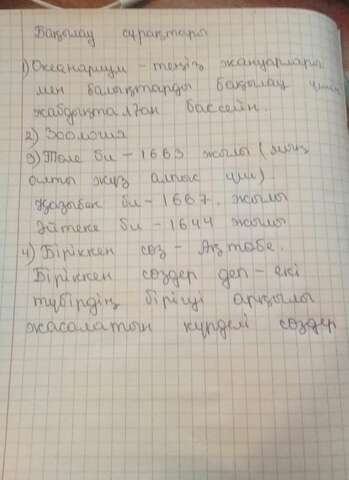 Бақылау сұрақтары
1) Океанариум – теңіз жануарлары
мен балықтарды бақылау үшін
жабдықталған бассейн.
2) Зоология
3) Төле би – 1663 жылы (мың
алты жүз алпыс үш).
Қазыбек би – 1667 жылы
Әйтеке би – 1644 жылы
4) Біріккен сөз – Ақтөбе.
Біріккен сөздер деп – екі
түбірдің бірігуі арқылы
жасалатын күрделі сөздер